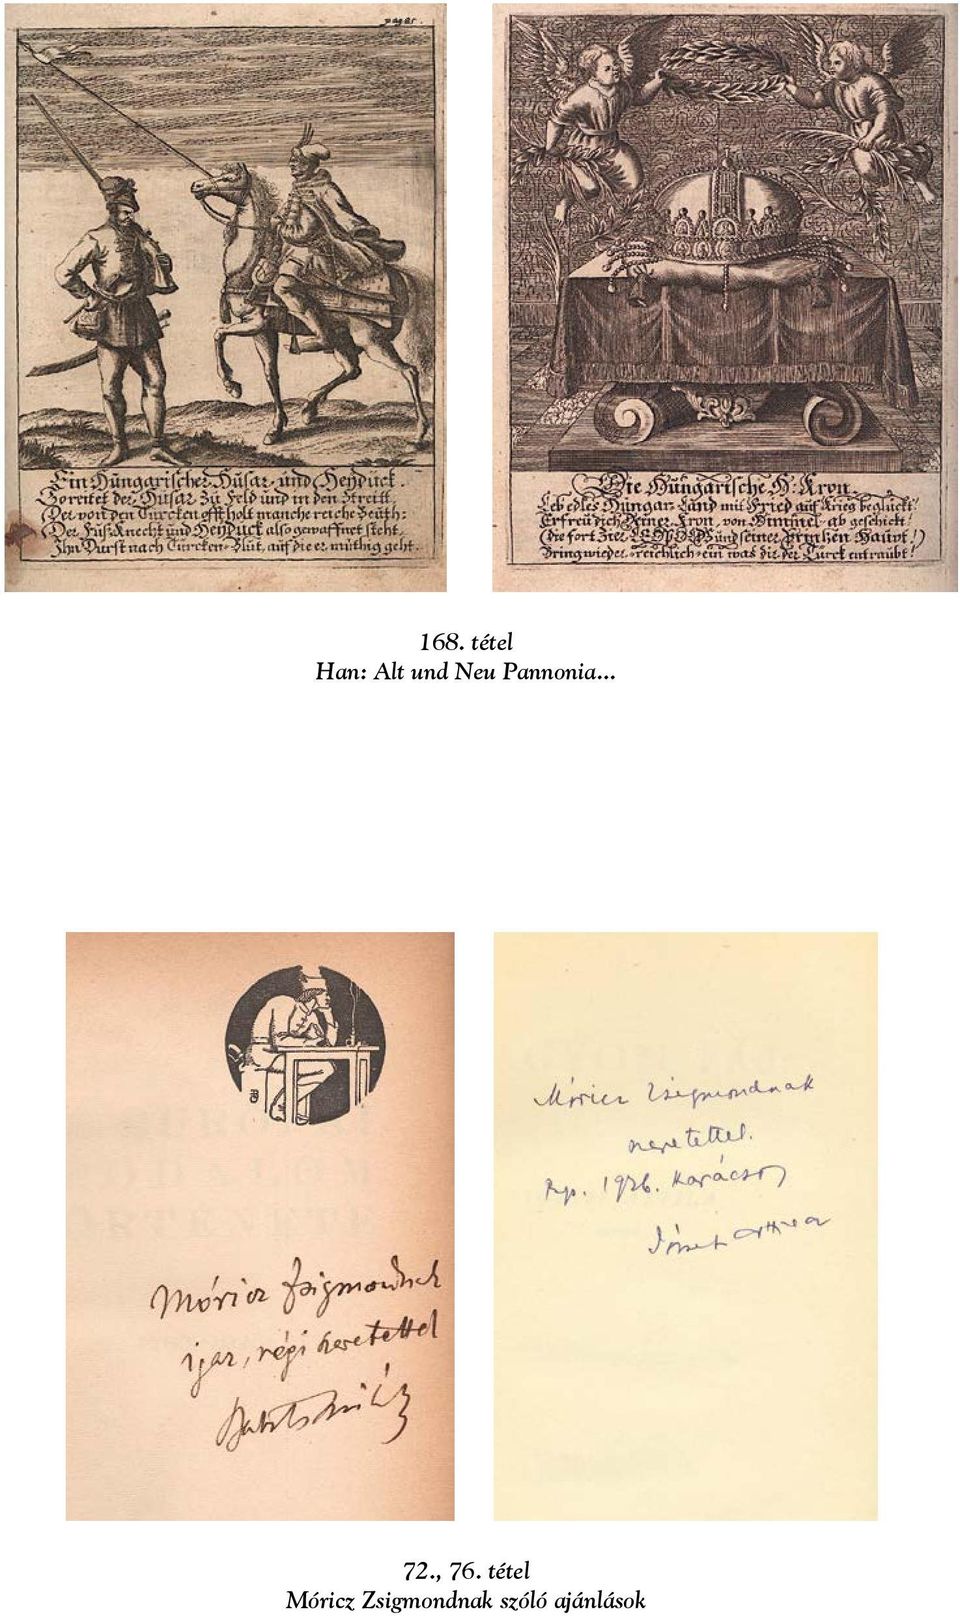 pag 85.
Ein Hungarischer Husar und Heyduck.
So reitet der Husar zu Feld und in den Streitt,
Der von den Turcken offt holt manche reiche Beüth:
Der Füs-Knecht und Heyduck also gewaffnet steht,
Ihn Durst nach Turcken-Blut, auf die er müthig geht.
Die Hungarische H. Kron.
Leb edles Hungar-Land mit Fried auf Krieg beglückt!
Erfreü dich Deiner Kron, von Himmel-ab geschickt!
(Die fort Zier LEOPOLDS und seines Printzen Haupt!)
Bring wieder-reichlich-ein was dir der Türck entraubt!
168. tétel
Han: Alt und Neu Pannonia...
Móricz Zsigmondnak
igaz, régi szeretettel
Babits Mihály
Móricz Zsigmondnak
szeretettel.
Bp. 1926. Karácson
József Attila
72., 76. tétel
Móricz Zsigmondnak szóló ajánlások